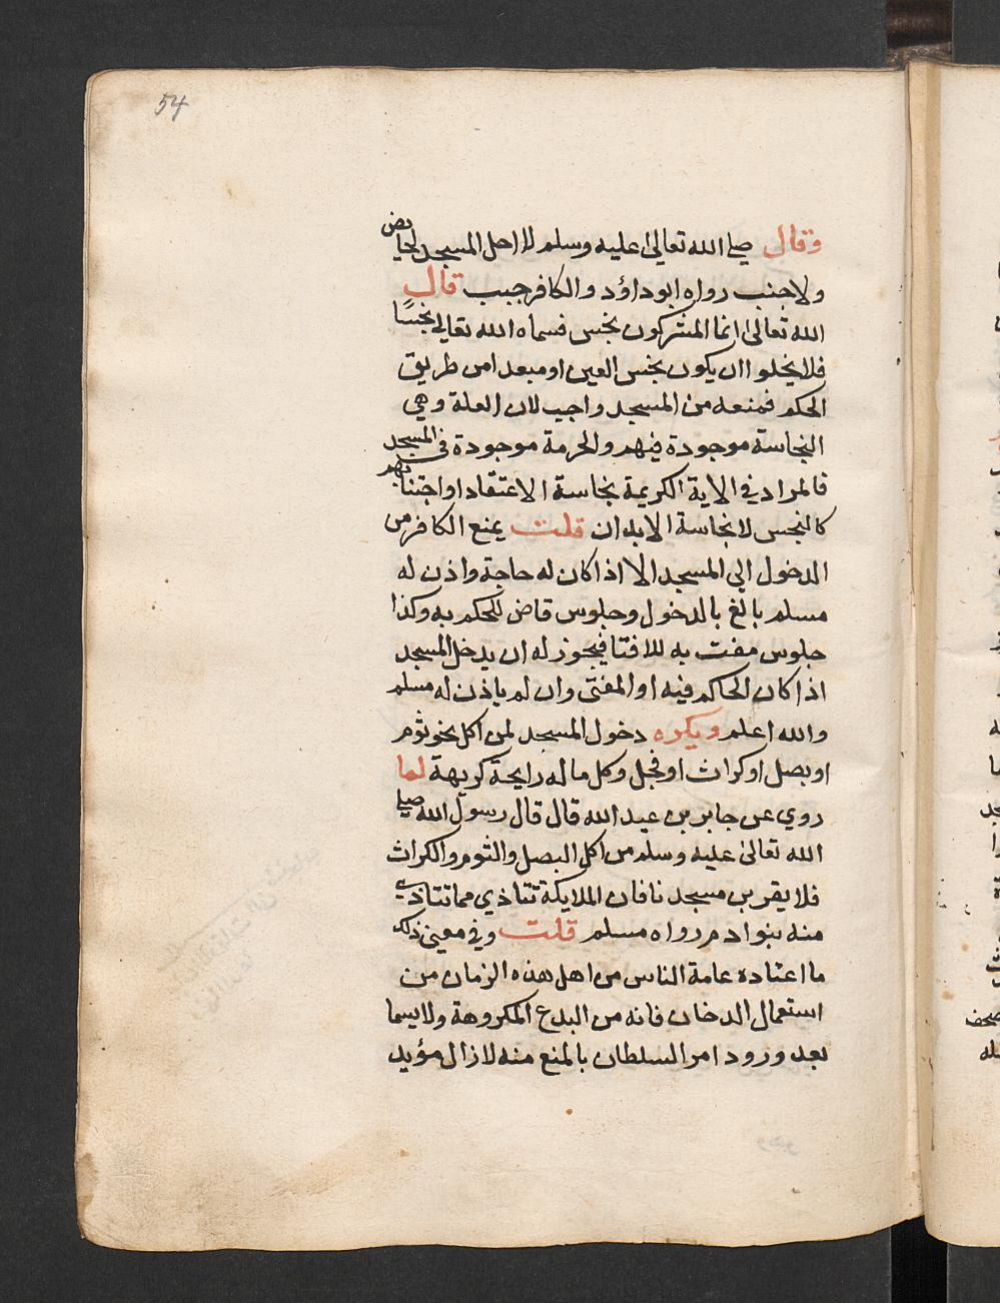 54
وقال صلى الله تعالى عليه وسلم لا احل المسجد لحايض
ولا جنب رواه ابو داؤد والكافر جبب قال
الله تعالى انما المشركون نجس فسماه الله تعالى نجسًا
فلا يخلو اان يكون نجس العين او مبعدا من طريق
الحكم فمنعه من المسجد واجب لان العلة وهي
النجاسة موجودة فيهم والحرمة موجودة في المسجد
فالمراد في الاية الكريمة نجاسة الاعتقاد او اجتنابهم
كالنجس لا نجاسة الابدان قلت يمنع الكافر من
الدخول الي المسجد الا اذا كان له حاجة واذن له
مسلم بالغ بالدخول وجلوس قاض للحكم به وكذا
جلوس مفت به للافتا فيجوز له ان يدخل المسجد
اذا كان الحاكم فيه او المفتى وان لم ياذن له مسلم
والله اعلم ويكره دخول المسجد لمن اكل نحو ثوم
او بصل او كراث او فجل وكل ما له رايحة كريهة لما
روي عن جابر بن عبد الله قال قال رسول الله صلى
الله تعالى عليه وسلم من اكل البصل والثوم والكراث
فلا يقربن مسجد نا فان الملايكة تتاذي مما تتاذي
منه بنوادم رواه مسلم قلت وفي معنى ذلك
ما اعتاده عامة الناس من اهل هذه الزمان من
استعمال الدخان فانه من البدع المكروهة ولا سيما
بعد ورود امر السلطان بالمنع منه لا زال مؤيد